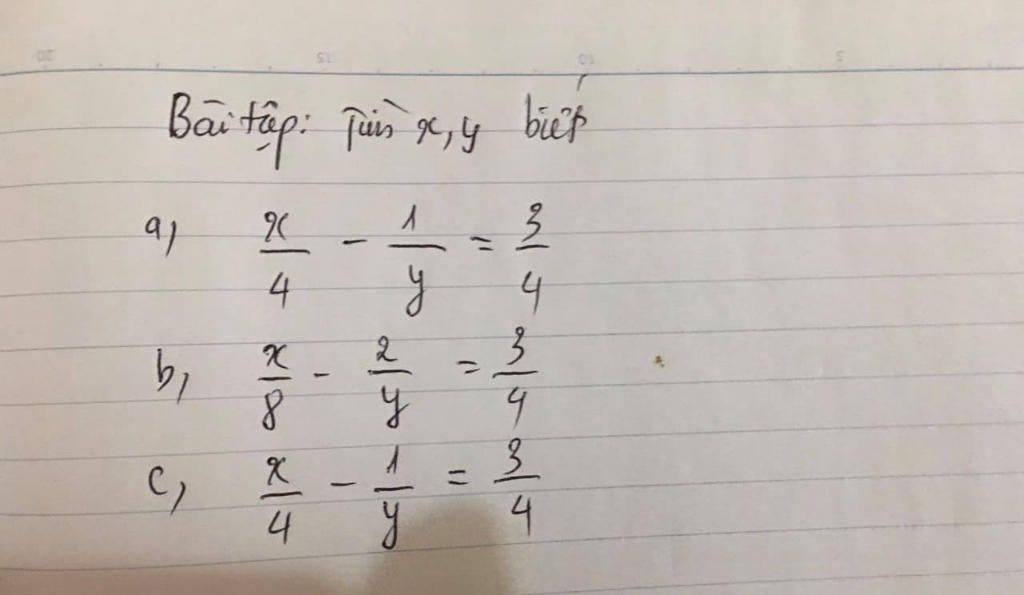 20 15 10 5
Bài tập: Tìm x, y biết
a, x/4 - 1/y = 3/4
b, x/8 - 2/y = 3/4
c, x/4 - 1/y = 3/4